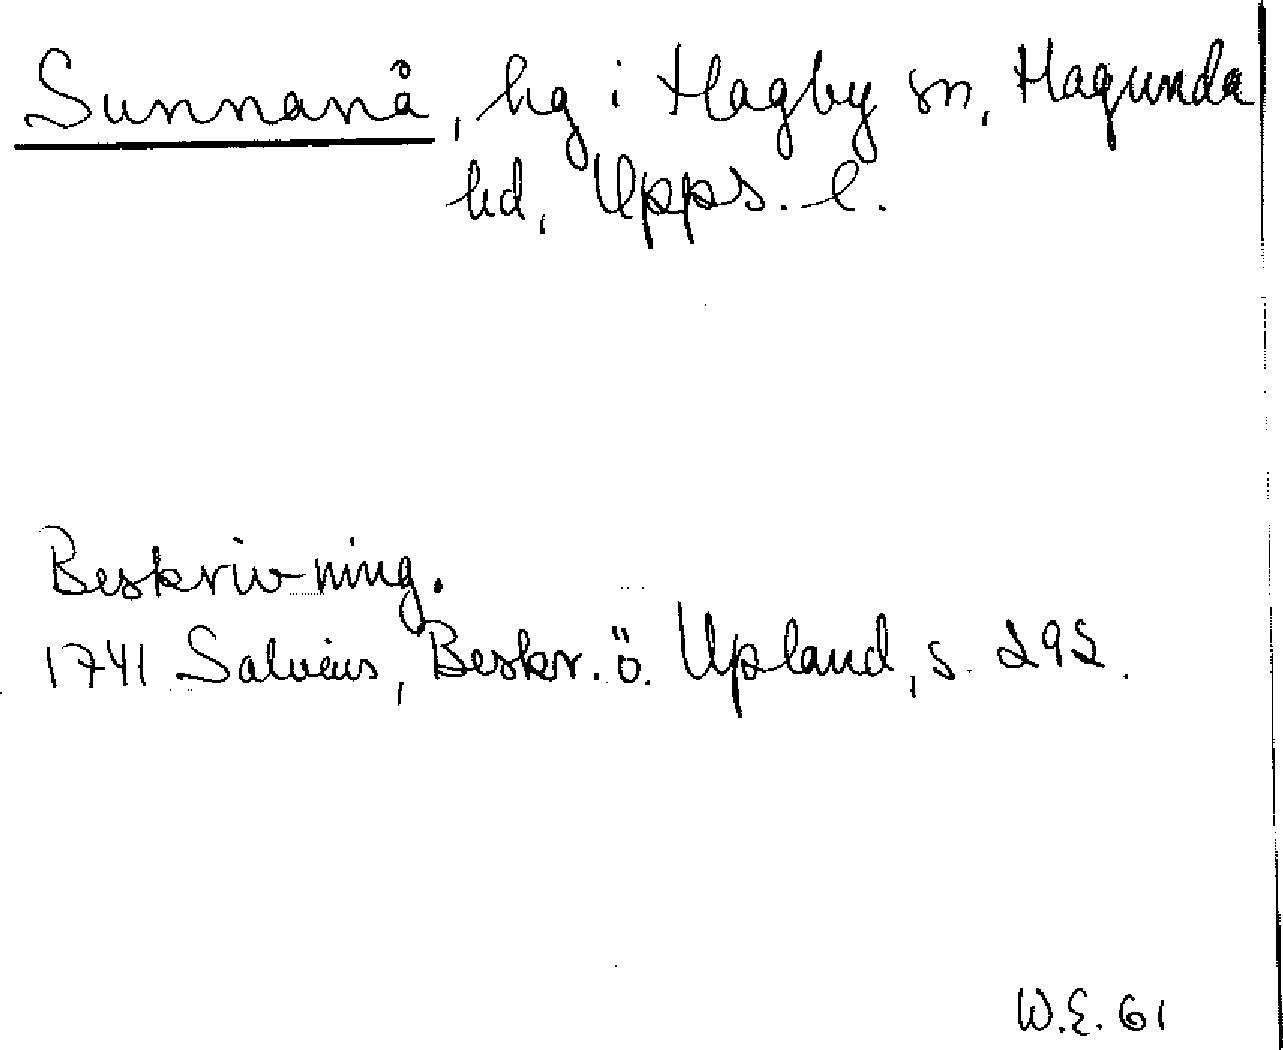 Sunnanå, hg i Hagby sn, Hagunda
hd, Upps. l.
Beskrivning.
1741 Salvius, Beskr. ö. Upland, s. 292.
W.E. 61